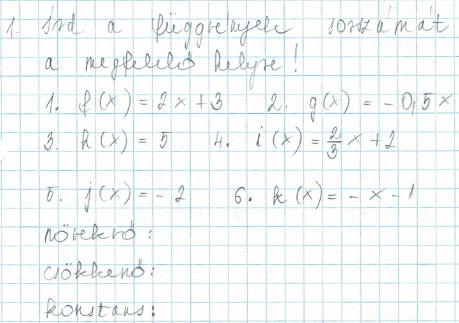 1. Írd a függvények sorszámát
a megfelelő helyre!
1. f(x) = 2x + 3   2. g(x) = - 0,5x
3. h(x) = 5   4. i(x) = 2/3 x + 2
5. j(x) = - 2   6. k(x) = - x - 1
növekvő:
csökkenő:
konstans: